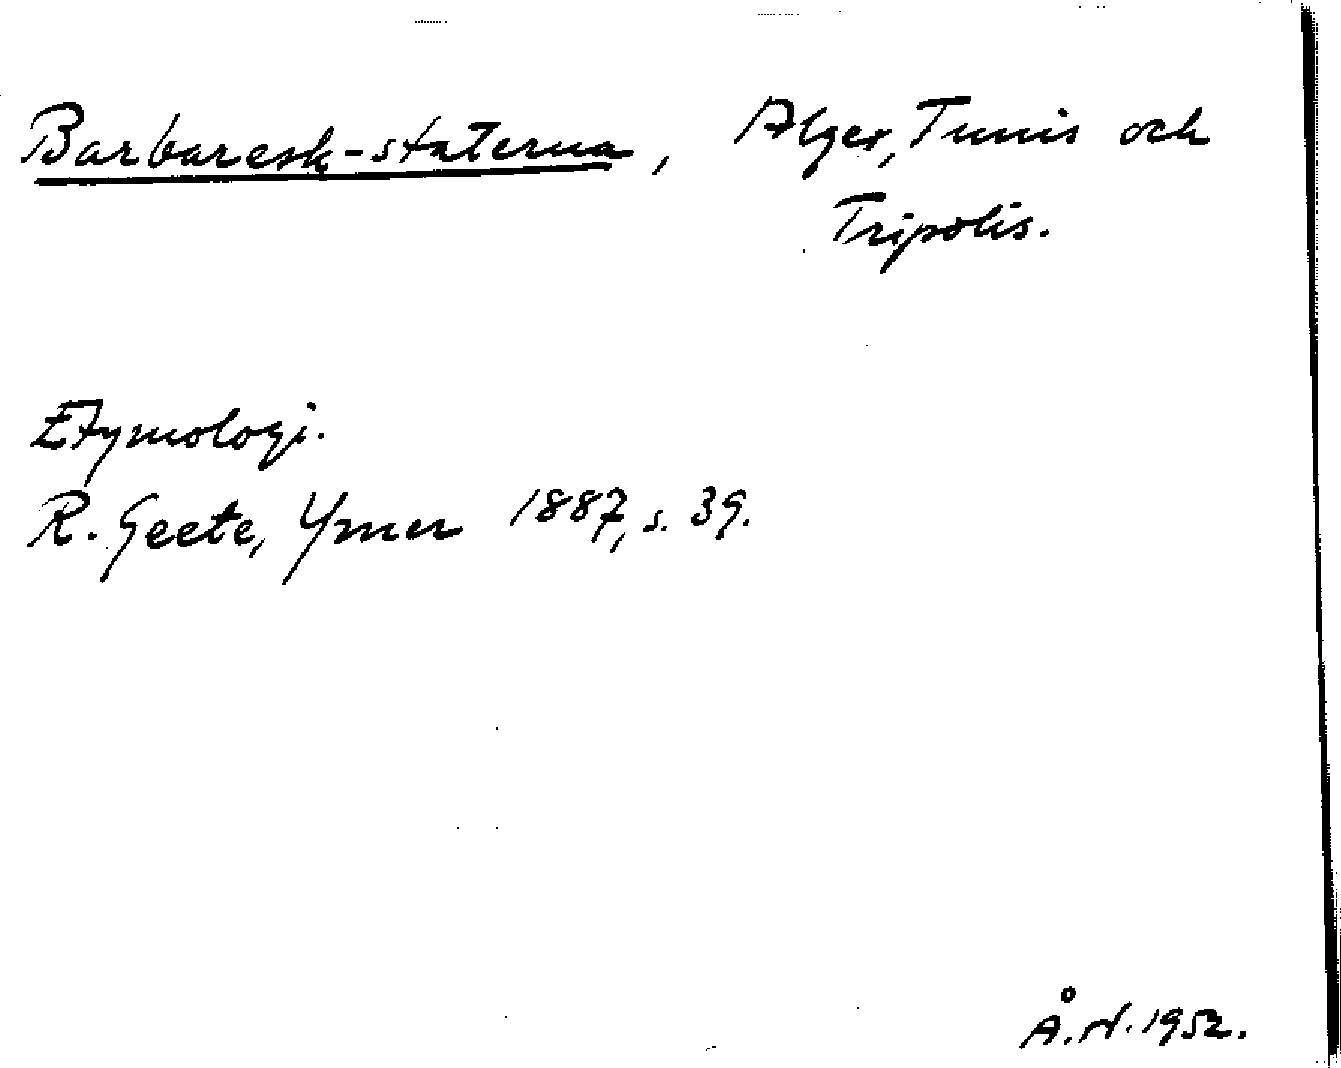 Barbaresk-staterna, Alger, Tunis och
Tripolis.
Etymologi.
R. Geete, Ymer 1887, s. 39.
Å.N. 1952.